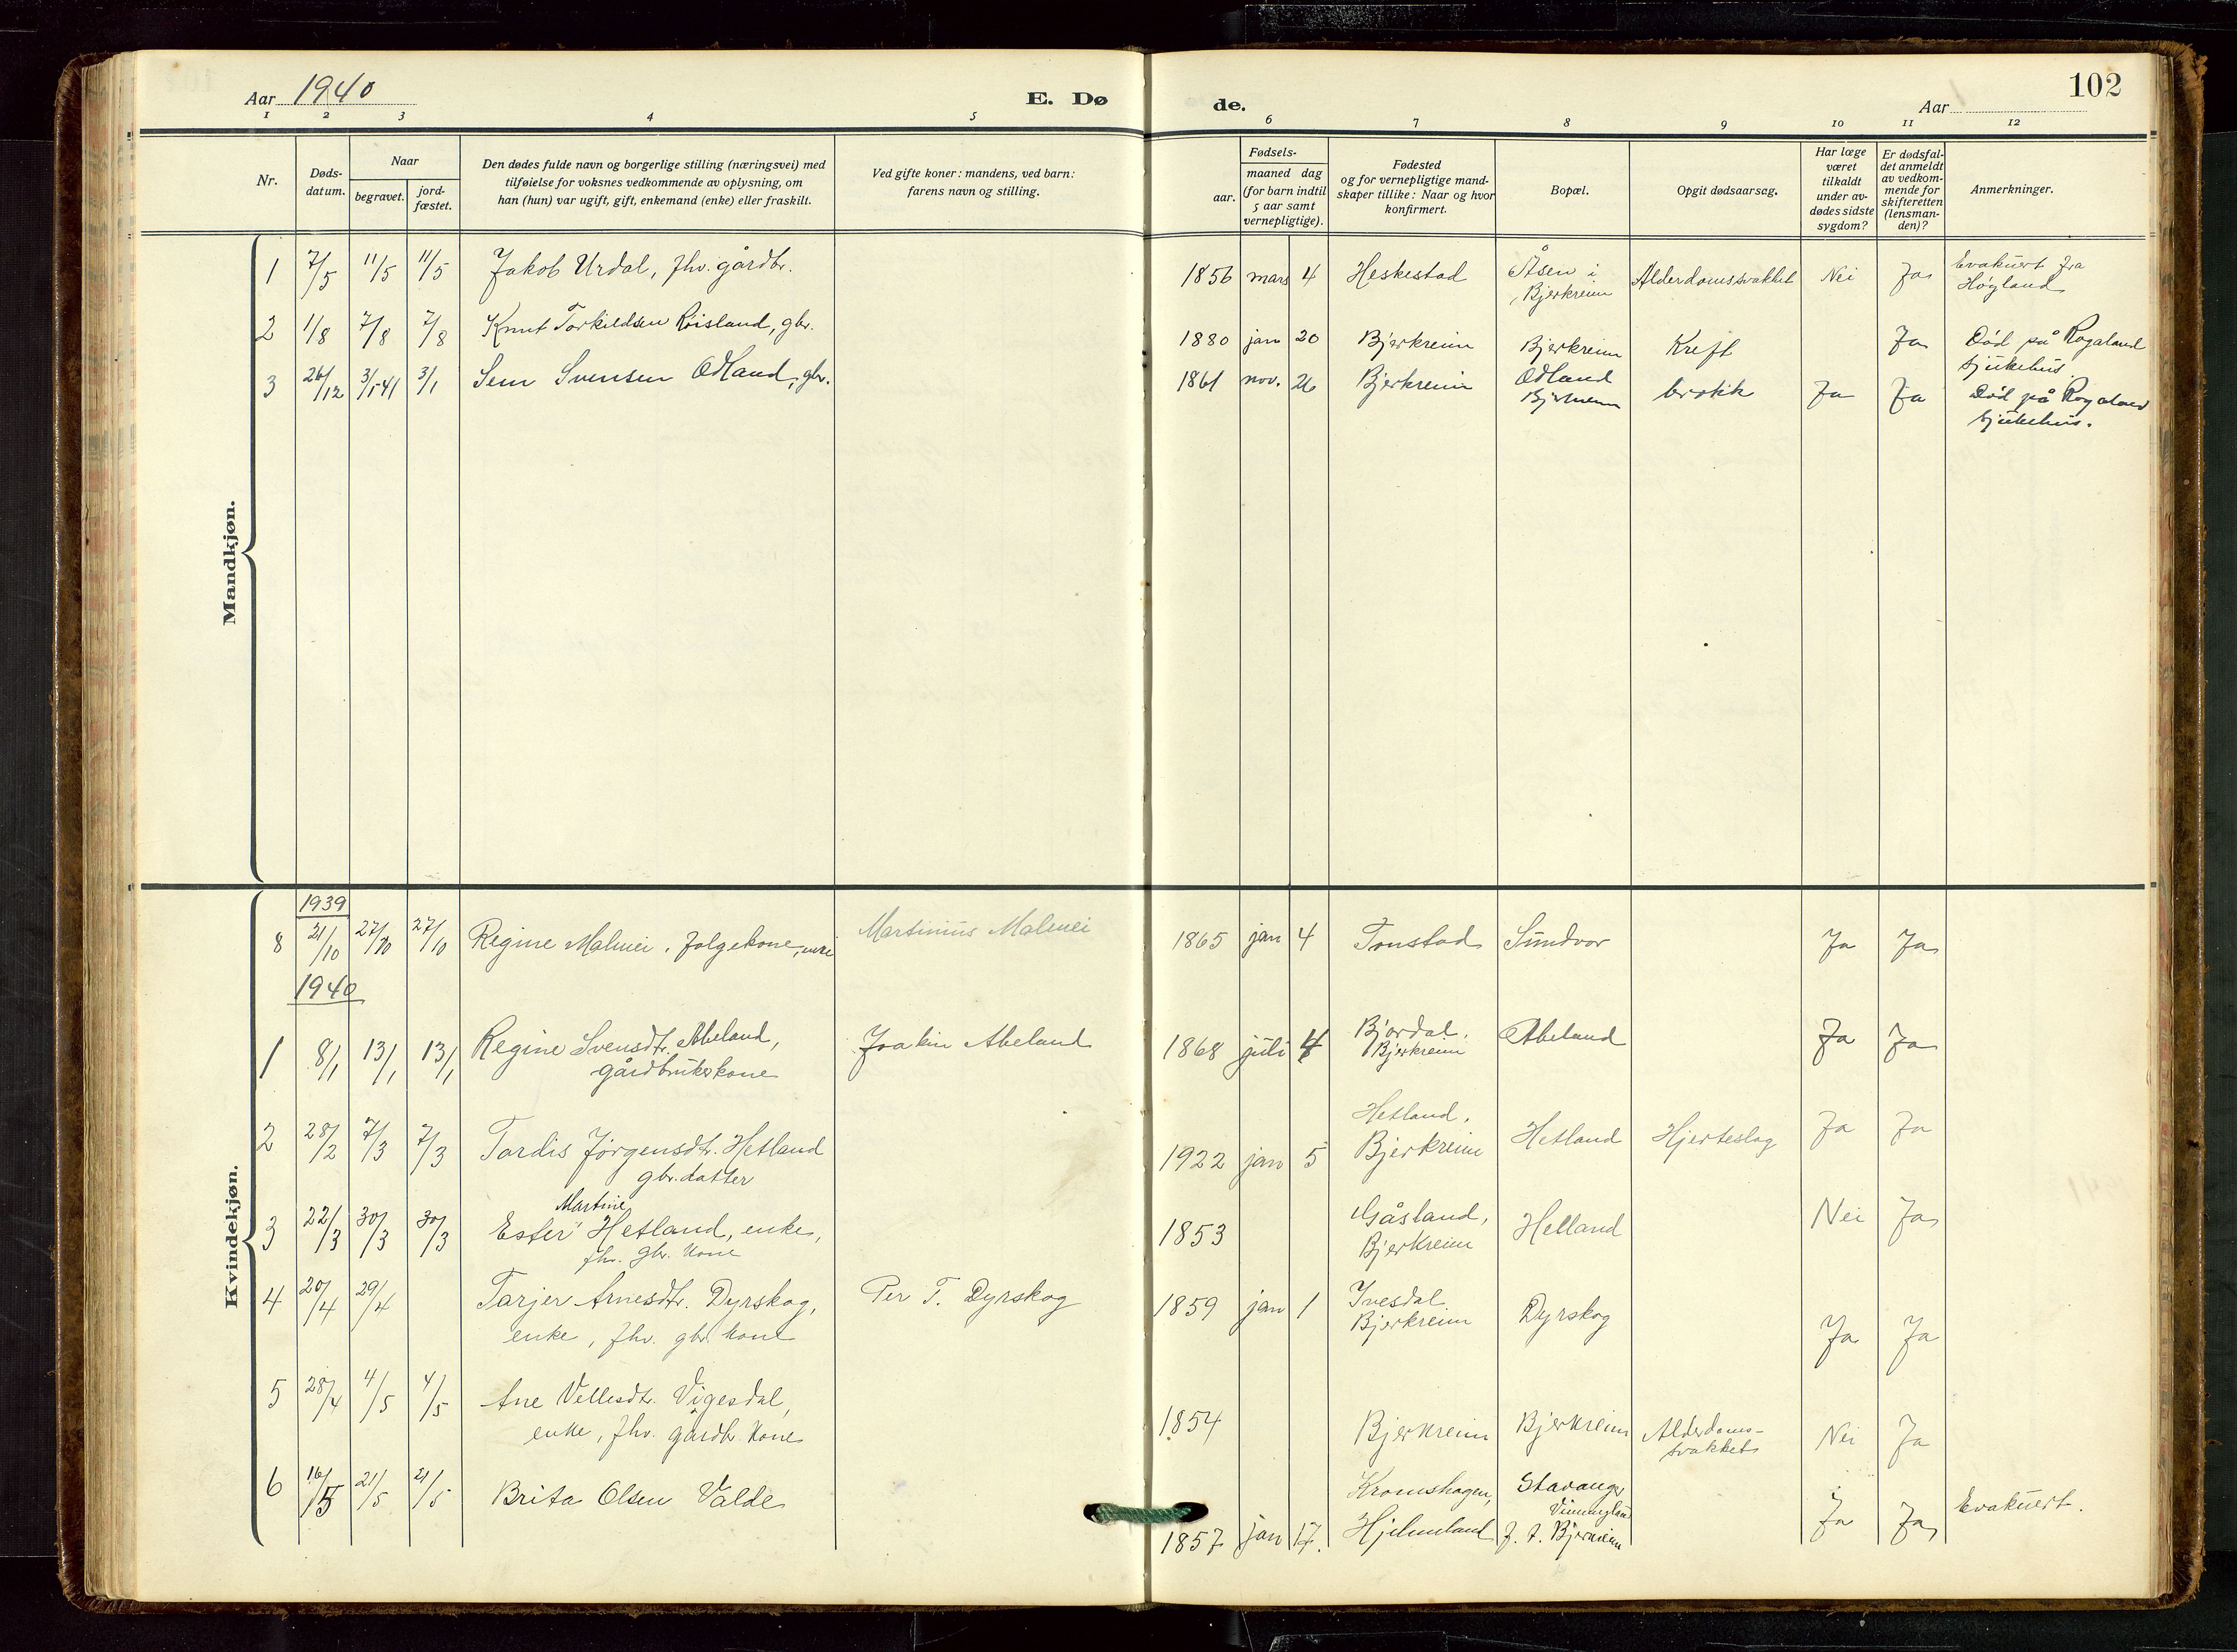 Aar 1940
E. Dø
de.
Aar
102
1 2 3 4 5 6 7 8 9 10 11 12
Nr.
Døds-
datum.
Naar
begravet.
jord-
fæstet.
Den dødes fulde navn og borgerlige stilling (næringsvei) med
tilføielse for voksnes vedkommende av oplysning, om
han (hun) var ugift, gift, enkemand (enke) eller fraskilt.
Ved gifte koner: mandens, ved barn:
farens navn og stilling.
Fødsels-
aar.
maaned dag
(for barn indtil
5 aar samt
vernepligtige).
Fødested
og for vernepligtige mand-
skaper tillike: Naar og hvor
konfirmert.
Bopæl.
Opgit dødsaarsag.
Har læge
været
tilkaldt
under av-
dødes sidste
sygdom?
Er dødsfal-
det anmeldt
av vedkom-
mende for
skifteretten
(lensman-
den)?
Anmerkninger.
Mandkjøn.
1 7/5 11/5 11/5 Jakob Urdal, fhv. gårdbr. 1856 mars 4 Heskestad Åsen i Alderdomssvakhet Nei Ja Evakuert fra
Bjerkreim Høyland
2 1/8 7/8 7/8 Knut Torkildsen Røisland, gbr. 1880 jan 20 Bjerkreim Bjerkreim Kreft Ja Død på Rogaland
sjukehus.
3 26/12 3/1 41 3/1 Sem Svensen Odland, gbr. 1861 nov. 26 Bjerkreim Odland brokk Ja Ja Død på Rogaland
Bjerkreim sjukehus.
Kvindekjøn.
1939
8 21/10 27/10 27/10 Regine Malmei, folgekone, Martinius Malmei 1865 jan 4 Tonstad Sundvor Ja Ja
1940
1 8/1 13/1 13/1 Regine Svensdtr. Abeland, Joakim Abeland 1868 juli 4 Bjordal, Abeland Ja Ja
gårdbrukerkone Bjerkreim
2 28/2 7/3 7/3 Tordis Jørgensdtr. Hetland 1922 jan 5 Hetland, Hetland Hjerteslag Ja Ja
gbr. datter Bjerkreim
Martine
3 22/3 30/3 30/3 Ester Hetland, enke, 1853 Gåsland, Helland Nei Ja
fhv. gbr. kone Bjerkreim
4 20/4 29/4 Tarjer Arnesdtr. Dyrskog, Per T. Dyrskog 1859 jan 1 Ivesdal Dyrskog Ja Ja
enke, fhv. gbr. kone Bjerkreim
5 28/4 4/5 4/5 Ane Vellesdtr. Vigesdal, 1854 Bjerkreim Bjerkreim Alderdoms- Nei Ja
enke, fhv. gårdbr. kone svakhet
6 16/5 21/5 21/5 Brita Olsen Valde 1857 jan 17. Kromshagen, Stavanger Ja Ja Evakuert.
Hjelmeland f. t. Bjerkreim